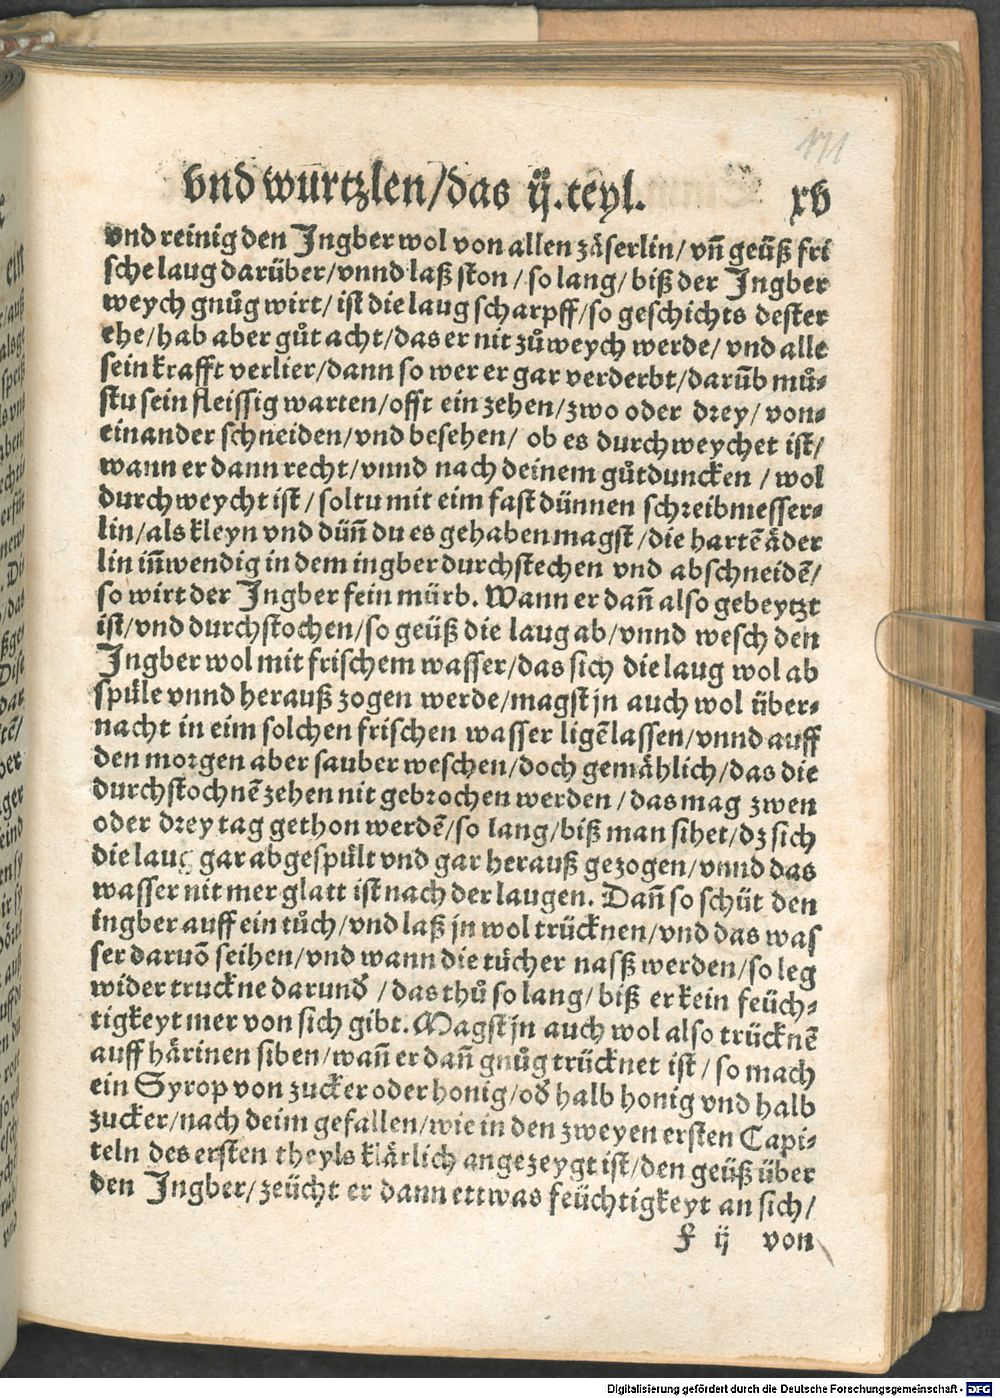 171
vnd wurtzlen/das ij.teyl. xv
vnd reinig den Jngber wol von allen zäserlin/vñ geüß fri
sche laug darüber/vnnd laß ston/so lang/biß der Jngber
weych gnůg wirt/ist die laug scharpff/so geschichts dester
ehe/hab aber gůt acht/das er nit zůweych werde/vnd alle
sein krafft verlier/dann so wer er gar verderbt/darūb můs⸗
stu sein fleissig warten/offt ein zehen/zwo oder drey/von⸗
einander schneiden/vnd besehen/ob es durchweychet ist/
wann er dann recht/vnnd nach deinem gůtduncken/wol
durchweycht ist/soltu mit eim fast dünnen schreibmesser⸗
lin/als kleyn vnd düñ du es gehaben magst/die hartē äder
lin iñwendig in dem ingber durchstechen vnd abschneidē/
so wirt der Jngber fein mürb. Wann er dañ also gebeytzt
ist/vnd durchstochen/so geüß die laug ab/vnnd wesch den
Jngber wol mit frischem wasser/das sich die laug wol ab
spůle vnnd herauß zogen werde/magst jn auch wol über⸗
nacht in eim solchen frischen wasser ligē lassen/vnnd auff
den morgen aber sauber weschen/doch gemählich/das die
durchstochnē zehen nit gebrochen werden/das mag zwen
oder drey tag gethon werdē/so lang/biß man sihet/dz sich
die laug gar abgespült vnd gar herauß gezogen/vnnd das
wasser nit mer glatt ist nach der laugen. Dañ so schüt den
ingber auff ein tůch/vnd laß jn wol trücknen/vnd das was
ser daruō seihen/vnd wann die tücher nasß werden/so leg
wider truckne darund̕/das thů so lang/biß er kein feüch⸗
tigkeyt mer von sich gibt. Magst jn auch wol also trücknē
auff härinen siben/wañ er dañ gnůg trücknet ist/so mach
ein Syrop von zucker oder honig/od̕ halb honig vnd halb
zucker/nach deim gefallen/wie in den zweyen ersten Capi⸗
teln des ersten theyls klärlich angezeygt ist/den geüß über
den Jngber/zeücht er dann ettwas feüchtigkeyt an sich/
f ij von
Digitalisierung gefördert durch die Deutsche Forschungsgemeinschaft - DFG